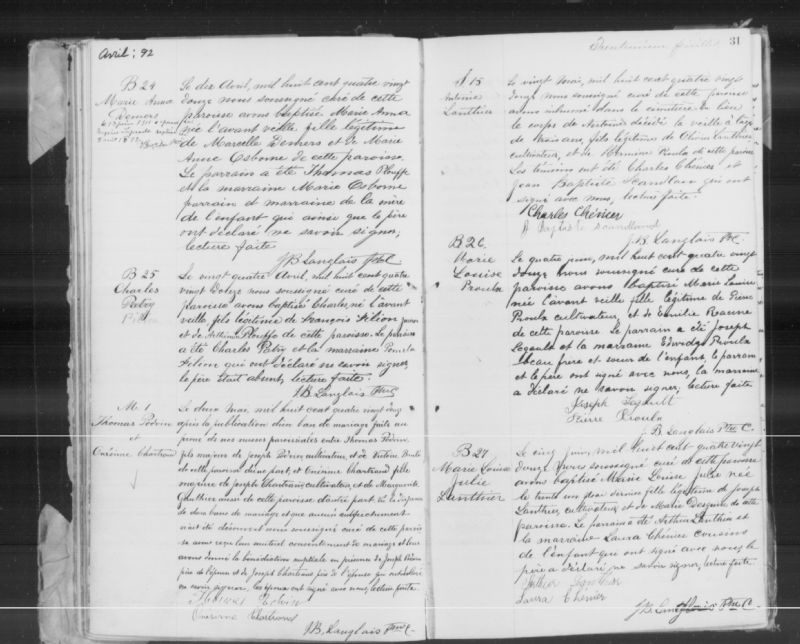 Avril : 92
B 24
Marie Anna
Demers
Le dix Avril, mil huit cent quatre vingt
douze nous soussigné curé de cette
paroisse avons baptisé Marie Anna
née l'avant veille, fille légitime
de Marcelle Demers et de Marie
Anne Osborne de cette paroisse.
Le parrain a été Thomas Plouffe
et la marraine Marie Osborne
parrain et marraine de la mère
de l'enfant qui ainsi que le père
ont déclaré ne savoir signer,
lecture faite
JB Langlais Ptre C
B 25
Charles
Patry
Le vingt quatre Avril, mil huit cent quatre
vingt douze nous soussigné curé de cette
paroisse avons baptisé Charles, né l'avant
veille fils légitime de François Filion
et de Plouffe de cette paroisse. Le parrain
a été Charles Patry et la marraine
Filion qui ont déclaré ne savoir signer
le père était absent, lecture faite.
JB Langlais Ptre C
M. 7
Thomas Potvin
et
Onézime Chartrand
Le deux Mai, mil huit cent quatre vingt douze
après la publication d'un ban de mariage faite au
prône de nos messes paroissiales entre Thomas Potvin,
fils majeur de Joseph Potvin, cultivateur, et de
de cette paroisse d'une part, et Onézime Chartrand fille
majeure de Joseph Chartrand, cultivateur, et de Marguerite
Gauthier aussi de cette paroisse d'autre part vu la dispense
de deux bans de mariage et que aucun empêchement
n'ait été découvert nous soussigné curé de cette paroisse
avons reçu leur mutuel consentement de mariage et leur
avons donné la bénédiction nuptiale en présence de Joseph Potvin
père de l'époux et de Joseph Chartrand père de l'épouse qui ont déclaré
ne savoir signer, les époux ont signé avec nous, lecture faite
Thomas Potvin
Onézime Chartrand
JB Langlais Ptre C
31
S 15
Antoine
Lauthier
Le vingt Mai, mil huit cent quatre vingt
douze nous soussigné curé de cette paroisse
avons inhumé dans le cimetière du lieu
le corps de Antoine décédé la veille à l'âge
de trois ans, fils légitime de Olivier Lauthier
cultivateur, et de Hermine Proulx de cette paroisse
Les témoins ont été Charles Chénier et
Jean Baptiste qui ont
signé avec nous, lecture faite.
Charles Chénier
JB Langlais Ptre C
B 26
Marie
Louise
Proulx
Le quatre juin, mil huit cent quatre vingt
douze nous soussigné curé de cette
paroisse avons baptisé Marie Louise
née l'avant veille fille légitime de Pierre
Proulx cultivateur, et de Emilie
de cette paroisse. Le parrain a été Joseph
Legault et la marraine Edwidge Proulx
beau frère et soeur de l'enfant, le parrain
et le père ont signé avec nous, la marraine
a déclaré ne savoir signer, lecture faite
Joseph Legault
Pierre Proulx
JB Langlais Ptre C.
B 27
Marie Louise
Julie
Lauthier
Le cinq juin, mil huit cent quatre vingt
douze nous soussigné curé de cette paroisse
avons baptisé Marie Louise Julie née
le trente un Mai dernier fille légitime de Joseph
Lauthier, cultivateur, et de Marie de cette
paroisse. Le parrain a été Arthur Lauthier et
la marraine Laura Chénier cousins
de l'enfant qui ont signé avec nous, le
père a déclaré ne savoir signer, lecture faite
Laura Chenier
JB Langlais Ptre C.